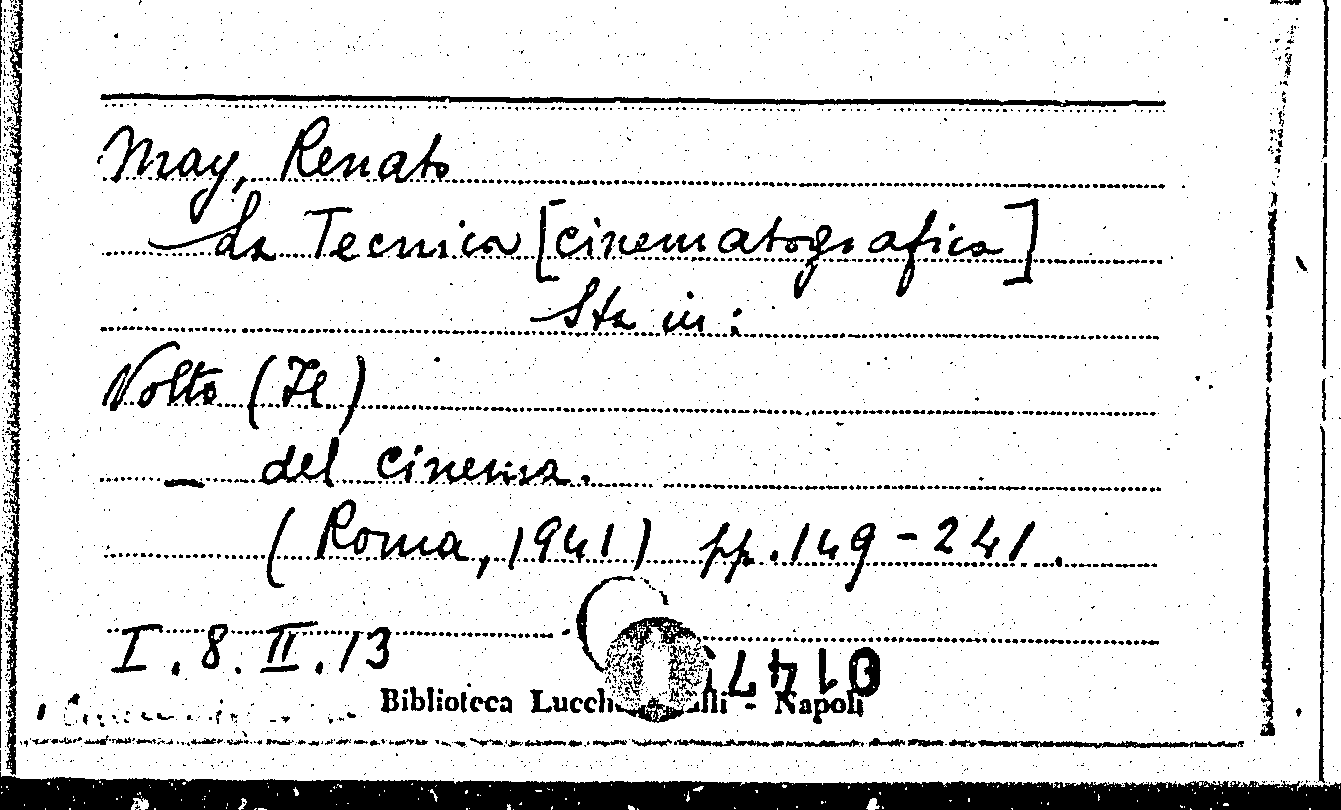 May, Renato
La Tecnica [cinematografica]
Sta in:
Volto (Il)
— del cinema.
(Roma, 1941) pp. 149-241.
I. 8. II. 13
Biblioteca - Napoli